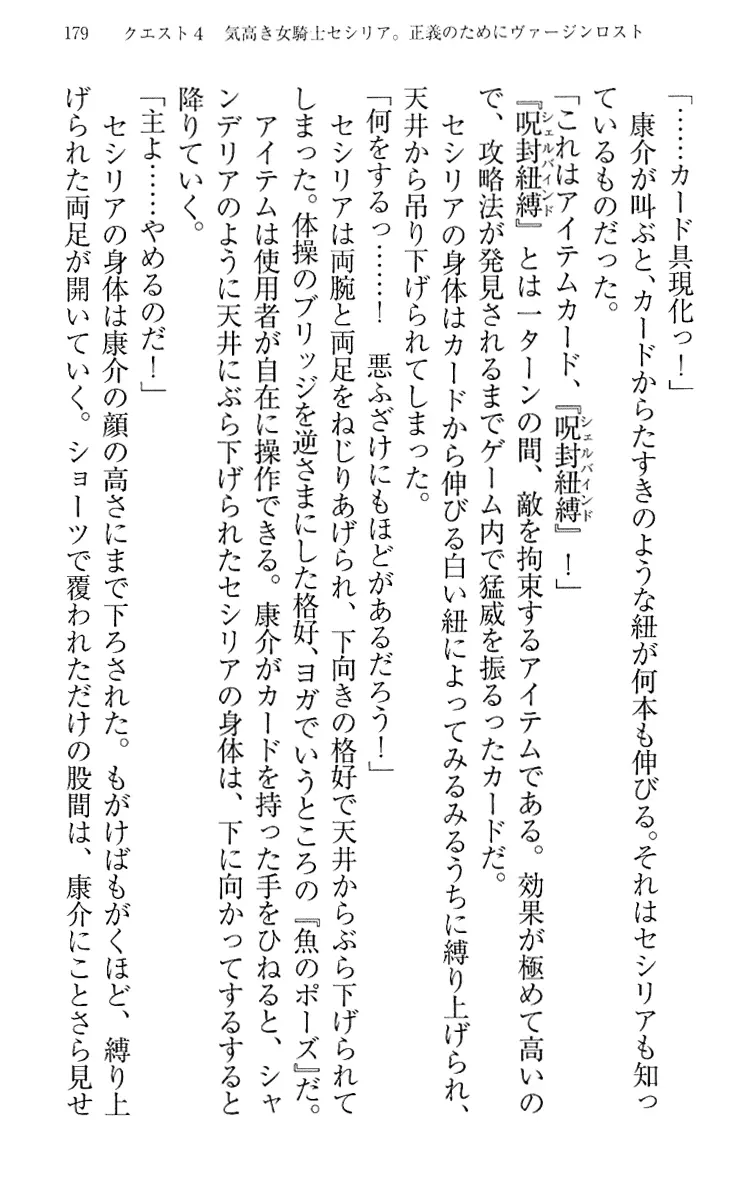 179　クエスト４　気高き女騎士セシリア。正義のためにヴァージンロスト
「……カード具現化っ！」
　康介が叫ぶと、カードからたすきのような紐が何本も伸びる。それはセシリアも知っ
ているものだった。
「これはアイテムカード、『呪封紐縛』！」
シェルバインド
『呪封紐縛』とは一ターンの間、敵を拘束するアイテムである。効果が極めて高いの
シェルバインド
で、攻略法が発見されるまでゲーム内で猛威を振るったカードだ。
　セシリアの身体はカードから伸びる白い紐によってみるみるうちに縛り上げられ、
天井から吊り下げられてしまった。
「何をするっ……！　悪ふざけにもほどがあるだろう！」
　セシリアは両腕と両足をねじりあげられ、下向きの格好で天井からぶら下げられて
しまった。体操のブリッジを逆さまにした格好、ヨガでいうところの『魚のポーズ』だ。
　アイテムは使用者が自在に操作できる。康介がカードを持った手をひねると、シャ
ンデリアのように天井にぶら下げられたセシリアの身体は、下に向かってするすると
降りていく。
「主よ……やめるのだ！」
　セシリアの身体は康介の顔の高さにまで下ろされた。もがけばもがくほど、縛り上
げられた両足が開いていく。ショーツで覆われただけの股間は、康介にことさら見せ